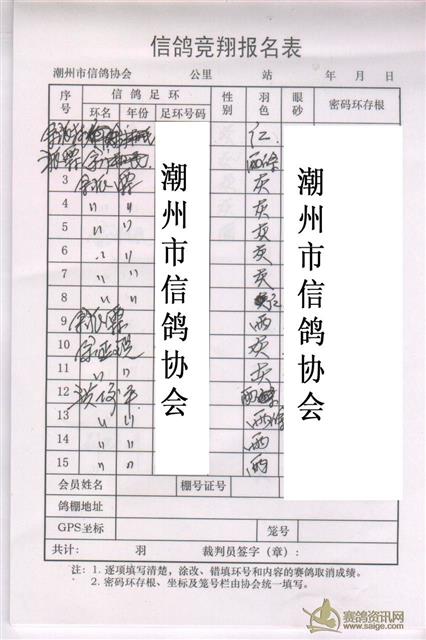 信鸽竞翔报名表
潮州市信鸽协会 公里 站 年 月 日
序号 信鸽足环 性别 羽色 眼砂 密码环存根
环名 年份 足环号码
红
雨
3 灰
4 〃 〃 灰
5 〃 〃 灰
6 〃 〃 灰
7 〃 〃 灰
8 〃 〃
9 雨
10 灰
11 〃 〃 灰
12 雨
13 〃 〃 雨
14 〃 〃 雨
15 〃 〃 雨
潮州市信鸽协会
潮州市信鸽协会
会员姓名 棚号证号
鸽棚地址
GPS坐标 笼号
共计: 羽 裁判员签字(章):
注: 1. 逐项填写清楚，涂改、错填环号和内容的赛鸽取消成绩。
2. 密码环存根、坐标及笼号栏由协会统一填写。
赛鸽资讯网
www.saige.com